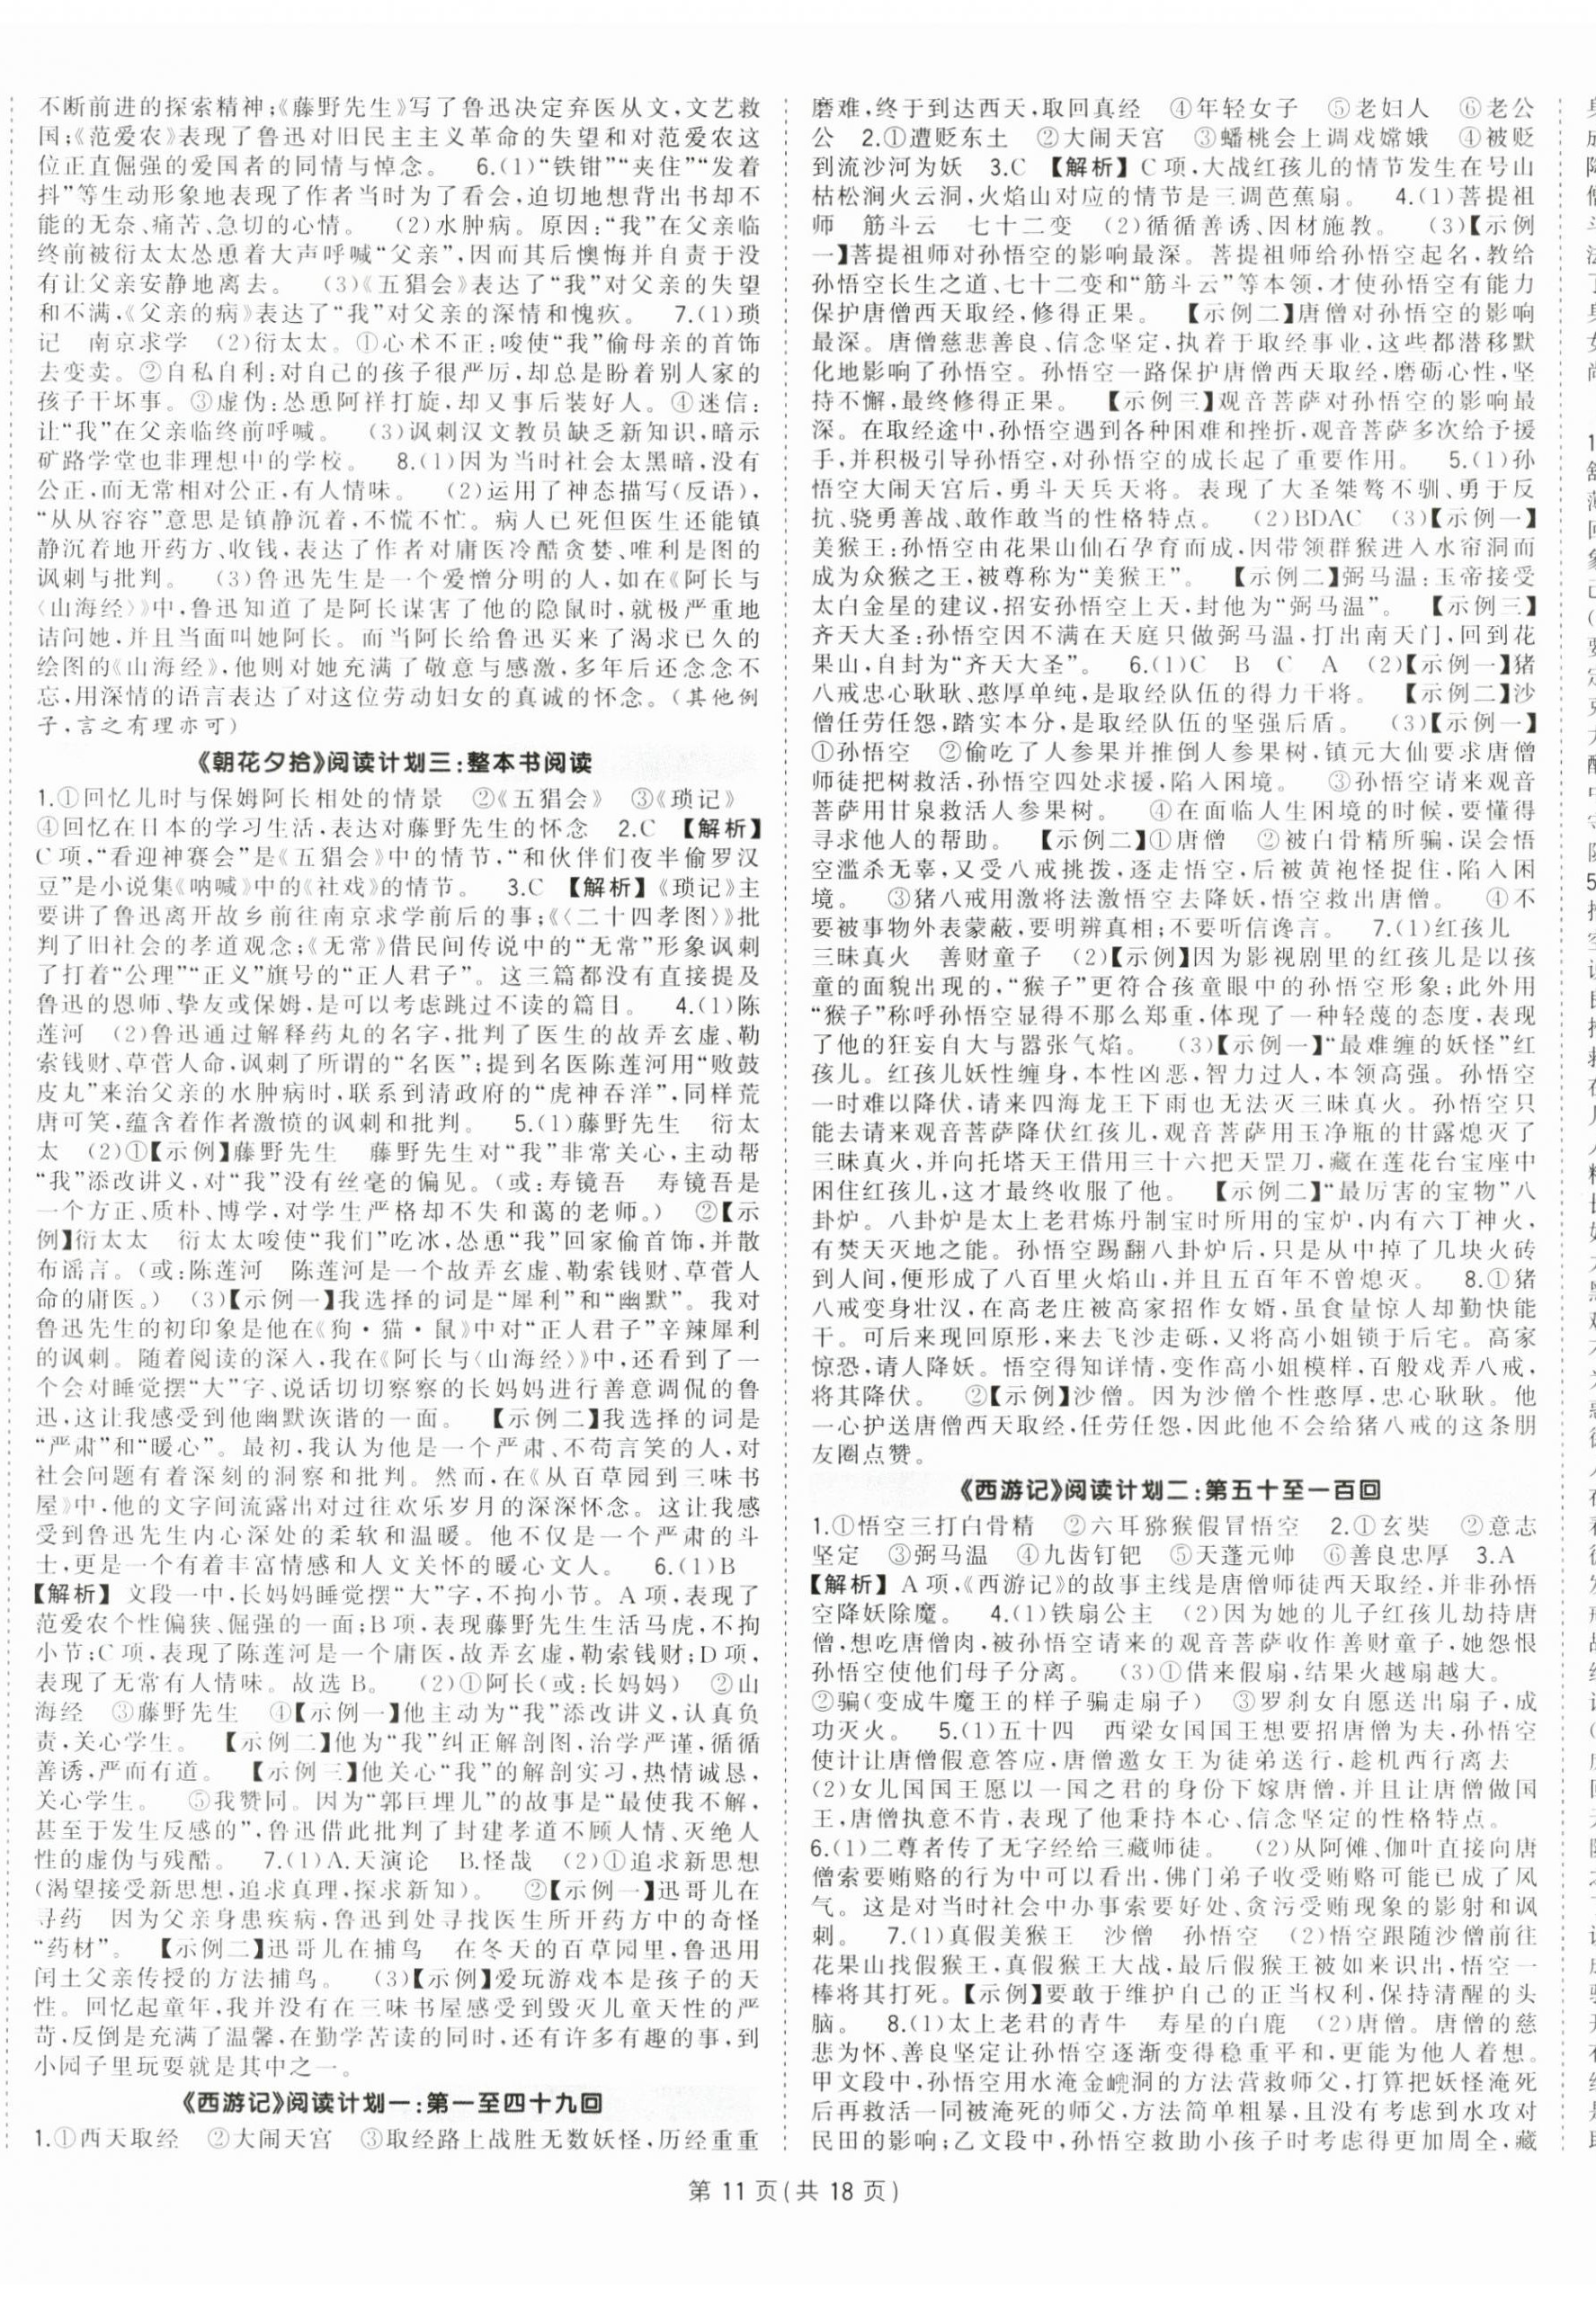 不断前进的探索精神;《藤野先生》写了鲁迅决定弃医从文,文艺救
国;《范爱农》表现了鲁迅对旧民主主义革命的失望和对范爱农这
位正直倔强的爱国者的同情与悼念。 6.(1)“铁钳”“夹住”“发着
抖”等生动形象地表现了作者当时为了看会,迫切地想背出书却不
能的无奈、痛苦、急切的心情。 (2)水肿病。原因:“我”在父亲临
终前被衍太太怂恿着大声呼喊“父亲”,因而其后懊悔并自责于没
有让父亲安静地离去。 (3)《五猖会》表达了“我”对父亲的失望
和不满,《父亲的病》表达了“我”对父亲的深情和愧疚。 7.(1)琐
记 南京求学 (2)衍太太。①心术不正:唆使“我”偷母亲的首饰
去变卖。②自私自利:对自己的孩子很严厉,却总是盼着别人家的
孩子干坏事。③虚伪:怂恿阿祥打旋,却又事后装好人。④迷信:
让“我”在父亲临终前呼喊。 (3)讽刺汉文教员缺乏新知识,暗示
矿路学堂也非理想中的学校。 8.(1)因为当时社会太黑暗,没有
公正,而无常相对公正,有人情味。 (2)运用了神态描写(反语),
“从从容容”意思是镇静沉着,不慌不忙。病人已死但医生还能镇
静沉着地开药方、收钱,表达了作者对庸医冷酷贪婪、唯利是图的
讽刺与批判。 (3)鲁迅先生是一个爱憎分明的人,如在《阿长与
〈山海经〉》中,鲁迅知道了是阿长谋害了他的隐鼠时,就极严重地
诘问她,并且当面叫她阿长。而当阿长给鲁迅买来了渴求已久的
绘图的《山海经》,他则对她充满了敬意与感激,多年后还念念不
忘,用深情的语言表达了对这位劳动妇女的真诚的怀念。(其他例
子,言之有理亦可)
《朝花夕拾》阅读计划三:整本书阅读
1.①回忆儿时与保姆阿长相处的情景 ②《五猖会》 ③《琐记》
④回忆在日本的学习生活,表达对藤野先生的怀念 2.C 【解析】
C项,“看迎神赛会”是《五猖会》中的情节,“和伙伴们夜半偷罗汉
豆”是小说集《呐喊》中的《社戏》的情节。 3.C 【解析】《琐记》主
要讲了鲁迅离开故乡前往南京求学前后的事;《〈二十四孝图〉》批
判了旧社会的孝道观念;《无常》借民间传说中的“无常”形象讽刺
了打着“公理”“正义”旗号的“正人君子”。这三篇都没有直接提及
鲁迅的恩师、挚友或保姆,是可以考虑跳过不读的篇目。 4.(1)陈
莲河 (2)鲁迅通过解释药丸的名字,批判了医生的故弄玄虚、勒
索钱财、草菅人命,讽刺了所谓的“名医”;提到名医陈莲河用“败鼓
皮丸”来治父亲的水肿病时,联系到清政府的“虎神吞洋”,同样荒
唐可笑,蕴含着作者激愤的讽刺和批判。 5.(1)藤野先生 衍太
太 (2)①【示例】藤野先生 藤野先生对“我”非常关心,主动帮
“我”添改讲义,对“我”没有丝毫的偏见。(或:寿镜吾 寿镜吾是
一个方正、质朴、博学,对学生严格却不失和蔼的老师。) ②【示
例】衍太太 衍太太唆使“我们”吃冰,怂恿“我”回家偷首饰,并散
布谣言。(或:陈莲河 陈莲河是一个故弄玄虚、勒索钱财、草菅人
命的庸医。) (3)【示例一】我选择的词是“犀利”和“幽默”。我对
鲁迅先生的初印象是他在《狗·猫·鼠》中对“正人君子”辛辣犀利
的讽刺。随着阅读的深入,我在《阿长与〈山海经〉》中,还看到了一
个会对睡觉摆“大”字、说话切切察察的长妈妈进行善意调侃的鲁
迅,这让我感受到他幽默诙谐的一面。 【示例二】我选择的词是
“严肃”和“暖心”。最初,我认为他是一个严肃、不苟言笑的人,对
社会问题有着深刻的洞察和批判。然而,在《从百草园到三味书
屋》中,他的文字间流露出对过往欢乐岁月的深深怀念。这让我感
受到鲁迅先生内心深处的柔软和温暖。他不仅是一个严肃的斗
士,更是一个有着丰富情感和人文关怀的暖心文人。 6.(1)B
【解析】文段一中,长妈妈睡觉摆“大”字,不拘小节。A项,表现了
范爱农个性偏狭、倔强的一面;B项,表现藤野先生生活马虎,不拘
小节;C项,表现了陈莲河是一个庸医,故弄玄虚,勒索钱财;D项,
表现了无常有人情味。故选B。 (2)①阿长(或:长妈妈) ②山
海经 ③藤野先生 ④【示例一】他主动为“我”添改讲义,认真负
责,关心学生。 【示例二】他为“我”纠正解剖图,治学严谨,循循
善诱,严而有道。 【示例三】他关心“我”的解剖实习,热情诚恳,
关心学生。 ⑤我赞同。因为“郭巨埋儿”的故事是“最使我不解,
甚至于发生反感的”,鲁迅借此批判了封建孝道不顾人情、灭绝人
性的虚伪与残酷。 7.(1)A.天演论 B.怪哉 (2)①追求新思想
(渴望接受新思想,追求真理,探求新知)。 ②【示例一】迅哥儿在
寻药 因为父亲身患疾病,鲁迅到处寻找医生所开药方中的奇怪
“药材”。 【示例二】迅哥儿在捕鸟 在冬天的百草园里,鲁迅用
闰土父亲传授的方法捕鸟。 (3)【示例】爱玩游戏本是孩子的天
性。回忆起童年,我并没有在三味书屋感受到毁灭儿童天性的严
苛,反倒是充满了温馨,在勤学苦读的同时,还有许多有趣的事,到
小园子里玩耍就是其中之一。
《西游记》阅读计划一:第一至四十九回
1.①西天取经 ②大闹天宫 ③取经路上战胜无数妖怪,历经重重
磨难,终于到达西天,取回真经 ④年轻女子 ⑤老妇人 ⑥老公
公 2.①遭贬东土 ②大闹天宫 ③蟠桃会上调戏嫦娥 ④被贬
到流沙河为妖 3.C 【解析】C项,大战红孩儿的情节发生在号山
枯松涧火云洞,火焰山对应的情节是三调芭蕉扇。 4.(1)菩提祖
师 筋斗云 七十二变 (2)循循善诱、因材施教。 (3)【示例
一】菩提祖师对孙悟空的影响最深。菩提祖师给孙悟空起名,教给
孙悟空长生之道、七十二变和“筋斗云”等本领,才使孙悟空有能力
保护唐僧西天取经,修得正果。 【示例二】唐僧对孙悟空的影响
最深。唐僧慈悲善良、信念坚定,执着于取经事业,这些都潜移默
化地影响了孙悟空。孙悟空一路保护唐僧西天取经,磨砺心性,坚
持不懈,最终修得正果。 【示例三】观音菩萨对孙悟空的影响最
深。在取经途中,孙悟空遇到各种困难和挫折,观音菩萨多次给予援
手,并积极引导孙悟空,对孙悟空的成长起了重要作用。 5.(1)孙
悟空大闹天宫后,勇斗天兵天将。表现了大圣桀骜不驯、勇于反
抗、骁勇善战、敢作敢当的性格特点。 (2)BDAC (3)【示例一】
美猴王:孙悟空由花果山仙石孕育而成,因带领群猴进入水帘洞而
成为众猴之王,被尊称为“美猴王”。 【示例二】弼马温:玉帝接受
太白金星的建议,招安孙悟空上天,封他为“弼马温”。 【示例三】
齐天大圣:孙悟空因不满在天庭只做弼马温,打出南天门,回到花
果山,自封为“齐天大圣”。 6.(1)C B C A (2)【示例一】猪
八戒忠心耿耿、憨厚单纯,是取经队伍的得力干将。 【示例二】沙
僧任劳任怨,踏实本分,是取经队伍的坚强后盾。 (3)【示例一】
①孙悟空 ②偷吃了人参果并推倒人参果树,镇元大仙要求唐僧
师徒把树救活,孙悟空四处求援,陷入困境。 ③孙悟空请来观音
菩萨用甘泉救活人参果树。 ④在面临人生困境的时候,要懂得
寻求他人的帮助。 【示例二】①唐僧 ②被白骨精所骗,误会悟
空滥杀无辜,又受八戒挑拨,逐走悟空,后被黄袍怪捉住,陷入困
境。 ③猪八戒用激将法激悟空去降妖,悟空救出唐僧。 ④不
要被事物外表蒙蔽,要明辨真相;不要听信谗言。 7.(1)红孩儿
三昧真火 善财童子 (2)【示例】因为影视剧里的红孩儿是以孩
童的面貌出现的,“猴子”更符合孩童眼中的孙悟空形象;此外用
“猴子”称呼孙悟空显得不那么郑重,体现了一种轻蔑的态度,表现
了他的狂妄自大与嚣张气焰。 (3)【示例一】“最难缠的妖怪”红
孩儿。红孩儿妖性缠身,本性凶恶,智力过人,本领高强。孙悟空
一时难以降伏,请来四海龙王下雨也无法灭三昧真火。孙悟空只
能去请来观音菩萨降伏红孩儿,观音菩萨用玉净瓶的甘露熄灭了
三昧真火,并向托塔天王借用三十六把天罡刀,藏在莲花台宝座中
困住红孩儿,这才最终收服了他。 【示例二】“最厉害的宝物”八
卦炉。八卦炉是太上老君炼丹制宝时所用的宝炉,内有六丁神火,
有焚天灭地之能。孙悟空踢翻八卦炉后,只是从中掉了几块火砖
到人间,便形成了八百里火焰山,并且五百年不曾熄灭。 8.①猪
八戒变身壮汉,在高老庄被高家招作女婿,虽食量惊人却勤快能
干。可后来现回原形,来去飞沙走砾,又将高小姐锁于后宅。高家
惊恐,请人降妖。悟空得知详情,变作高小姐模样,百般戏弄八戒,
将其降伏。 ②【示例】沙僧。因为沙僧个性憨厚,忠心耿耿。他
一心护送唐僧西天取经,任劳任怨,因此他不会给猪八戒的这条朋
友圈点赞。
《西游记》阅读计划二:第五十至一百回
1.①悟空三打白骨精 ②六耳猕猴假冒悟空 2.①玄奘 ②意志
坚定 ③弼马温 ④九齿钉钯 ⑤天蓬元帅 ⑥善良忠厚 3.A
【解析】A项,《西游记》的故事主线是唐僧师徒西天取经,并非孙悟
空降妖除魔。 4.(1)铁扇公主 (2)因为她的儿子红孩儿劫持唐
僧,想吃唐僧肉,被孙悟空请来的观音菩萨收作善财童子,她怨恨
孙悟空使他们母子分离。 (3)①借来假扇,结果火越扇越大。
②骗(变成牛魔王的样子骗走扇子) ③罗刹女自愿送出扇子,成
功灭火。 5.(1)五十四 西梁女国国王想要招唐僧为夫,孙悟空
使计让唐僧假意答应,唐僧邀女王为徒弟送行,趁机西行离去
(2)女儿国国王愿以一国之君的身份下嫁唐僧,并且让唐僧做国
王,唐僧执意不肯,表现了他秉持本心、信念坚定的性格特点。
6.(1)二尊者传了无字经给三藏师徒。 (2)从阿傩、伽叶直接向唐
僧索要贿赂的行为中可以看出,佛门弟子收受贿赂可能已成了风
气。这是对当时社会中办事索要好处、贪污受贿现象的影射和讽
刺。 7.(1)真假美猴王 沙僧 孙悟空 (2)悟空跟随沙僧前往
花果山找假猴王,真假猴王大战,最后假猴王被如来识出,悟空一
棒将其打死。【示例】要敢于维护自己的正当权利,保持清醒的头
脑。 8.(1)太上老君的青牛 寿星的白鹿 (2)唐僧。唐僧的慈
悲为怀、善良坚定让孙悟空逐渐变得稳重平和,更能为他人着想。
甲文段中,孙悟空用水淹金𡺹洞的方法营救师父,打算把妖怪淹死
后再救活一同被淹死的师父,方法简单粗暴,且没有考虑到水攻对
民田的影响;乙文段中,孙悟空救助小孩子时考虑得更加周全,藏
第 11 页(共 18 页)